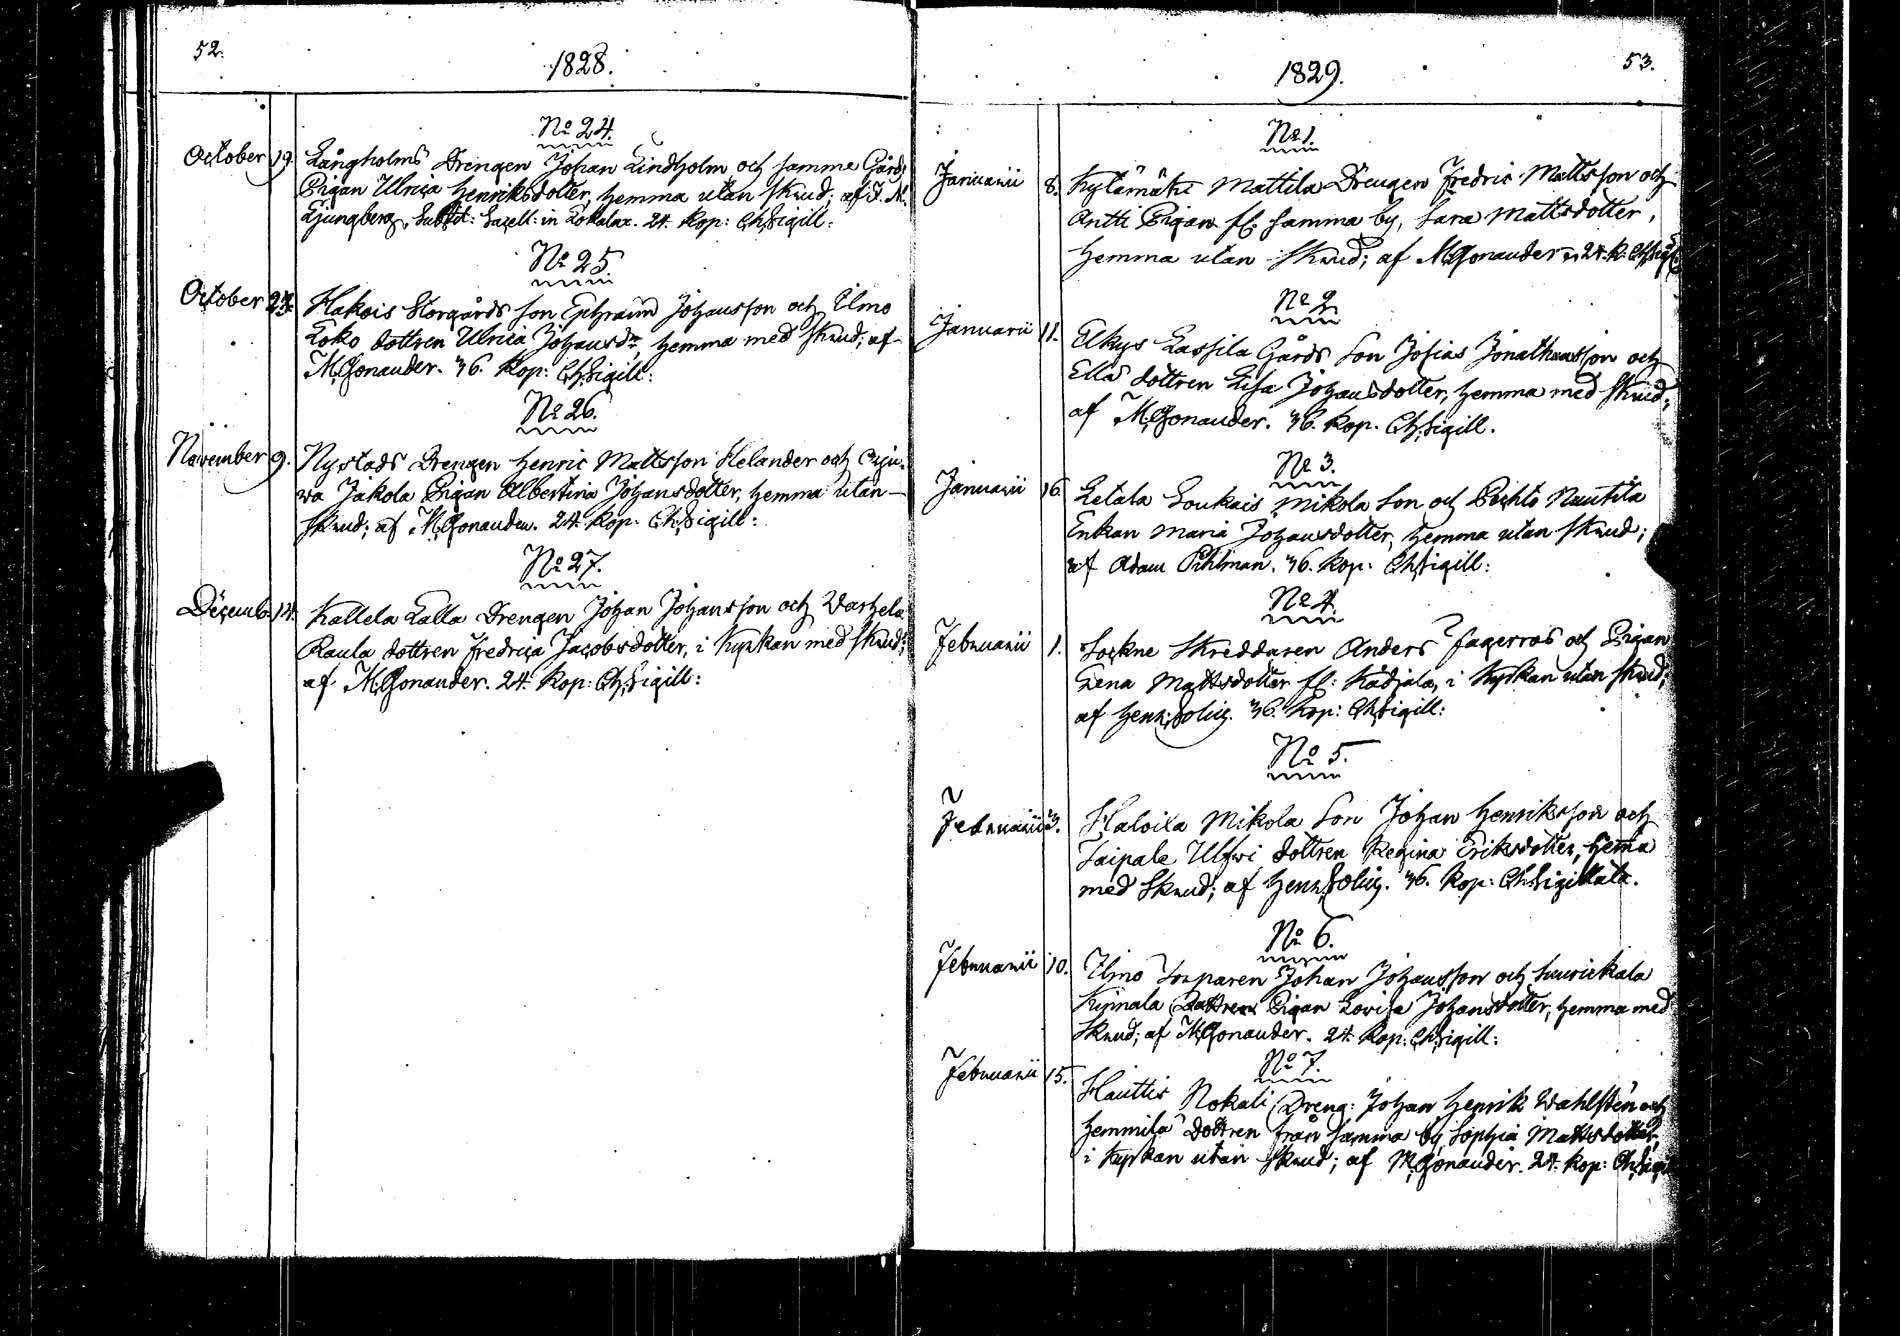 52.
1828.
No 24.
October 19. Långholms Drengen Johan Lindholm och samme Gårds
Pigan Ulrica Henriksdotter, hemma utan skrud; af J. M.
Ljungberg, Subst: Sacell: in Lokalax. 24. kop: Ch. Sigill:
No 25.
October 24. Hakois Storgårds son Ephraim Johansson och Ilmo
Loko dottren Ulrica Johansdr, hemma med skrud; af
M. Gonander. 36. kop: Ch. Sigill:
No 26.
November 9. Nystads Drengen Henric Mattsson Helander och
wa Jakola Pigan Albertina Johansdotter, hemma utan
skrud; af M. Gonander. 24. kop: Ch. Sigill:
No 27.
Decemb. 14. Kallela Lalla Drengen Johan Johansson och Warhela
Raula dottren Fredrica Jacobsdotter, i Kyrkan med skrud;
af M. Gonander. 24. kop: Ch. Sigill:
53.
1829.
No 1.
Januarii 8. Kylämäki Mattila Drengen Fredric Mattsson och
Antti Pigan fr. samma by, Sara Mattsdotter,
hemma utan skrud; af M. Gonander 24. k: Ch. Sigill
No 2.
Januarii 11. Elkys Lassila Gårds Son Josias Jonathansson och
Ella dottren Lisa Johansdotter, hemma med skrud;
af M. Gonander. 36. kop. Ch. Sigill.
No 3.
Januarii 16. Letala Soukais Mikola Son och Nautila
Enkan Maria Johansdotter, hemma utan skrud;
af Adam Pihlman. 36. kop: Ch. Sigill:
No 4.
Februarii 1. Sockne Skreddaren Anders Fagerroos och Pigan
Lena Mattsdotter fr: Kådjala, i Kyrkan utan skrud;
af Henr. 36. kop: Ch. Sigill:
No 5.
Februarii 3. Haloila Mikola Son Johan Henriksson och
Taipale Ulfwi dottren Regina Eriksdotter, hema
med skrud; af Henr. 36. kop: Ch. Sigillata.
No 6.
Februarii 10. Ilmo Torparen Johan Johansson och
Pigan Lovisa Johansdotter, hemma med
skrud; af M. Gonander. 24. kop: Ch. Sigill:
No 7.
Februarii 15. Hauttis Nokali Dreng: Johan Henrik Wahlstén och
Hemmilä Dottren från samma by Sophia Mattsdotter,
i Kyrkan utan skrud; af M. Gonander. 24. kop: Ch. Sigill